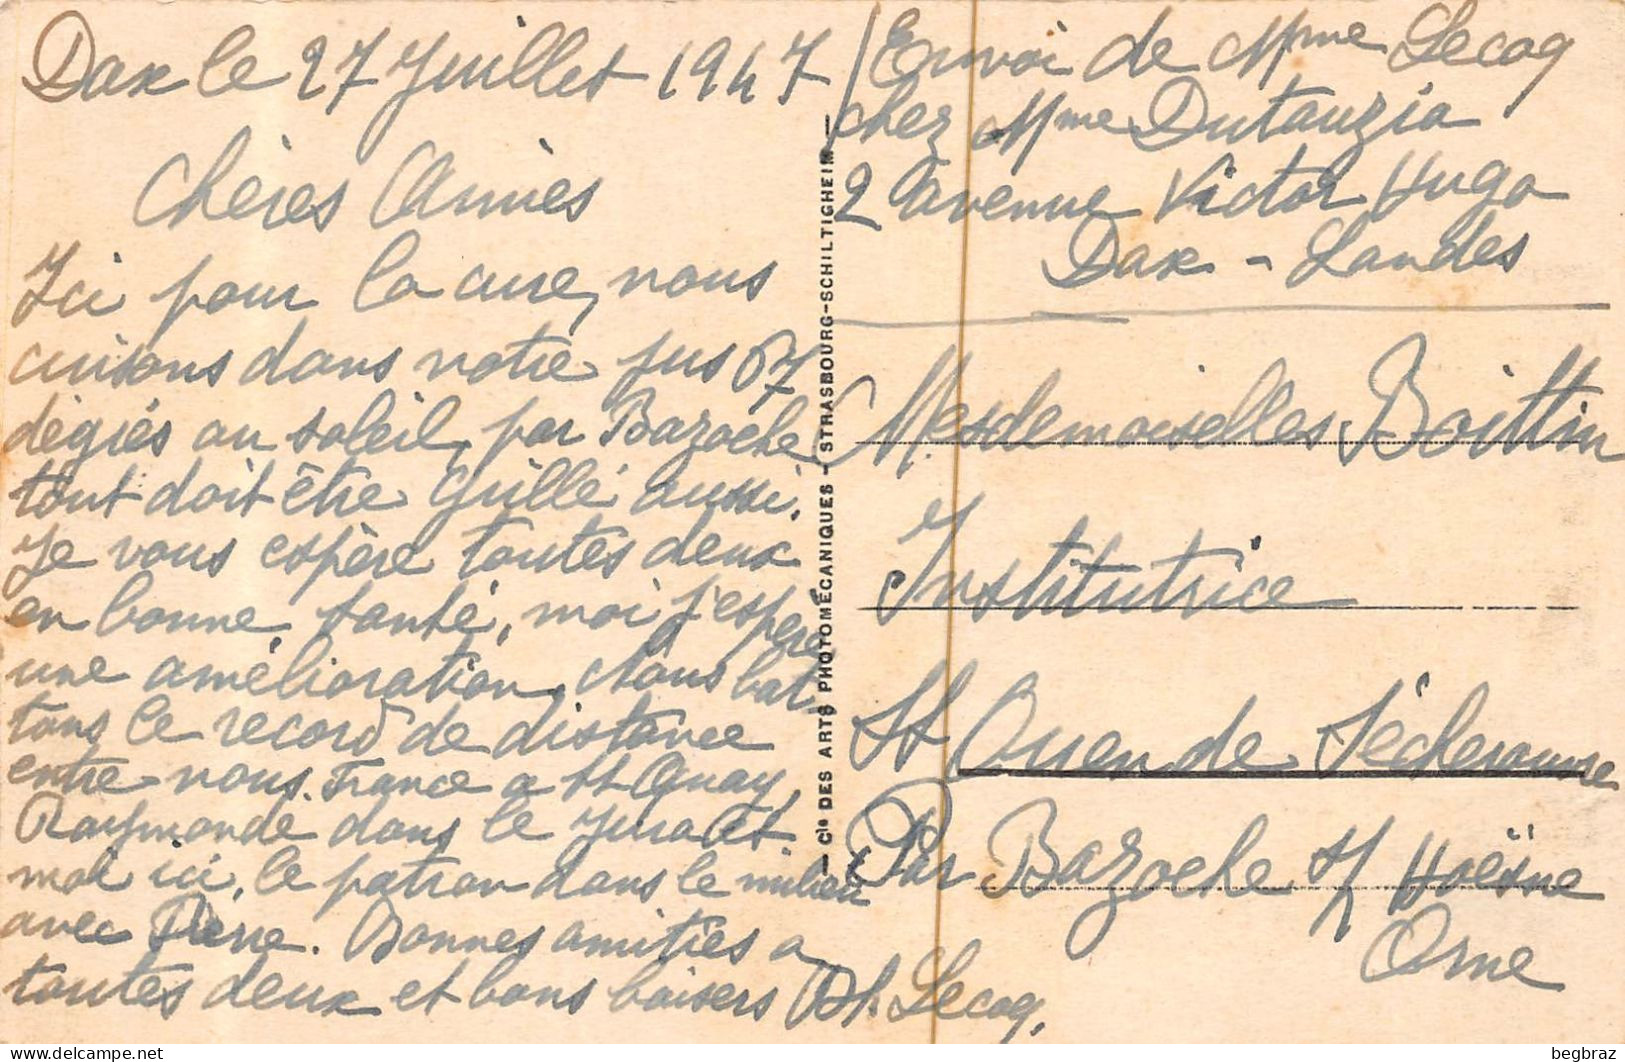 Dax le 27 Juillet 1947
Chères Amies
Ici pour la cure, nous
cuisons dans notre jus 67
dégrés au soleil, par Bazoche
tout doit être grillé aussi.
Je vous espère toutes deux
en bonne santé, moi j'espère
une amélioration, Nous bat
tons le record de distance
entre nous. France a St Quay,
Raymonde dans le Jura et
moi ici, le patron dans le milieu
avec Pierre. Bonnes amitiés a
toutes deux et bons baisers
Lecoq.
Cie DES ARTS PHOTOMECANIQUES - STRASBOURG-SCHILTIGHEIM
Envoi de Mme Lecoq
chez Mme Dutauzia
2 avenue Victor Hugo
Dax - Landes
Mesdemoiselles Boittin
Institutrice
St Ouen de Sécherouvre
Par Bazoche s/ Hoësne
Orne
begbraz